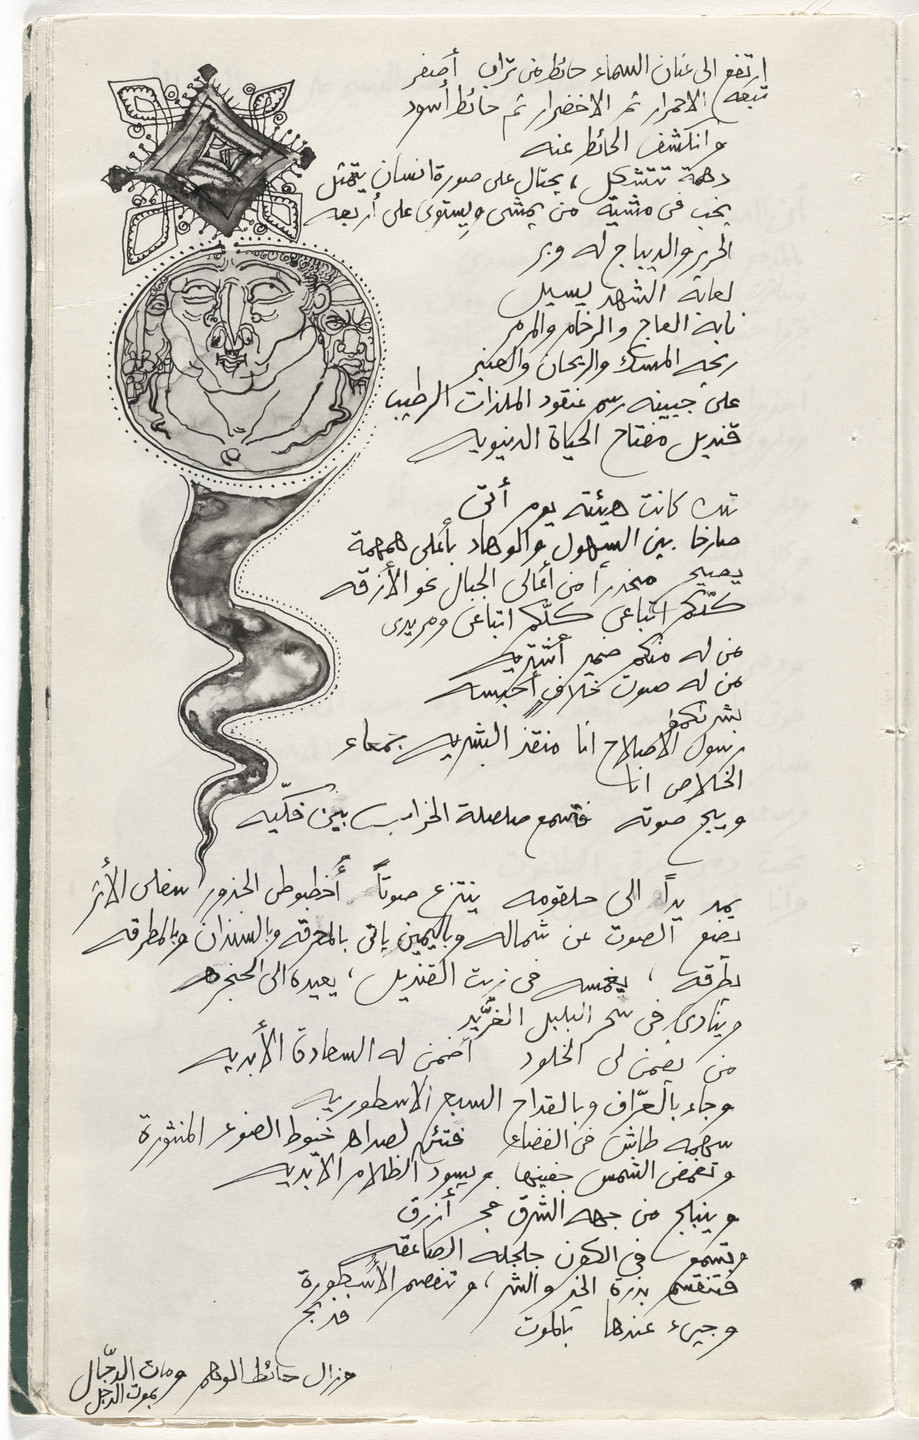 ارتفع الى عنان السماء حائط من تراب أصفر
تبعه الاحمرار ثم الاخضرار ثم حائط أسود
وانكشف الحائط عنه
دهمة تتشكل ، يحتال على صورة انسان يتمثل
يخب في مشيته من يمشي ويستوي على أربعه
الحرير والديباج له وبر
لعابه الشهد يسيل
نابه العاج والرخام والمرمر
ريحه المسك والريحان والعنبر
على جبينه رسم عنقود الملذات الرطيب
قنديل مفتاح الحياة الدنيويه
تلك كانت هيئته يوم أتى
صارخا بين السهول والوهاد بأعلى همهمة
يصيح منحدراً من أعالي الجبال نحو الأزقه
كلّكم اتباعي كلّكم اتباعي ومريدي
من له منكم ضمير أشتريه
من له صوت خلافٍ أحبسه
بشراكم
رسول الاصلاح انا منقذ البشريه جمعاء
الخلاص انا
ويبح صوته فتسمع صلصلة الخراب بين فكّيه
يمد يداً الى حلقومه ينتزع صوتاً أخطبوطي الجذور سفلي الأثر
يضع الصوت عن شماله وباليمين يأتي بالمحرقه وبالسندان وبالمطرقه
يطرقه ، يغمسه في زيت القنديل ، يعيده الى الحنجره
وينادي في سحر البلبل الغرّيد
من يضمن لي الخلود أضمن له السعادة الأبديه
وجاء بالعرّاف وبالقداح السبع الاسطوريه
سهمه طاش في الفضاء فتئن لصداه خيوط الضوء المنثورة
وتغمض الشمس جفنيها ويسود الظلام الأبديه
وينبلج من جهه الشرق فجر أزرق
وتسمع في الكون جلجله الصاعقه
فتنقسم بذرة الخير والشر ، وتنفصم الأسطورة
وجيء عندها بالموت فذبح
وزال حائط الوهم ومات الدجّال
بموت الدجل